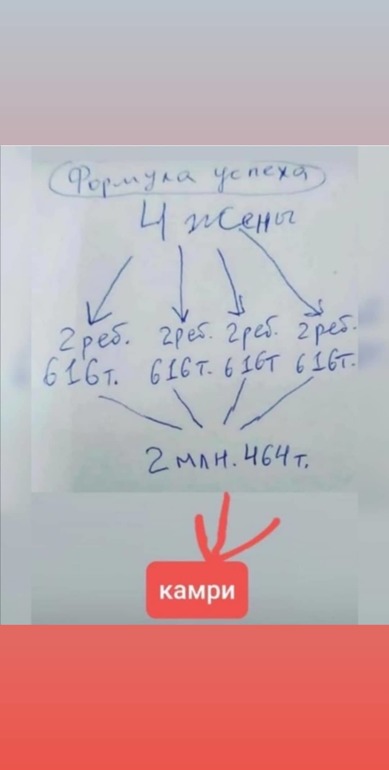 Формула успеха
4 жены
2 реб. 2 реб. 2 реб. 2 реб.
616т. 616т. 616т 616т.
2 млн. 464т.
камри